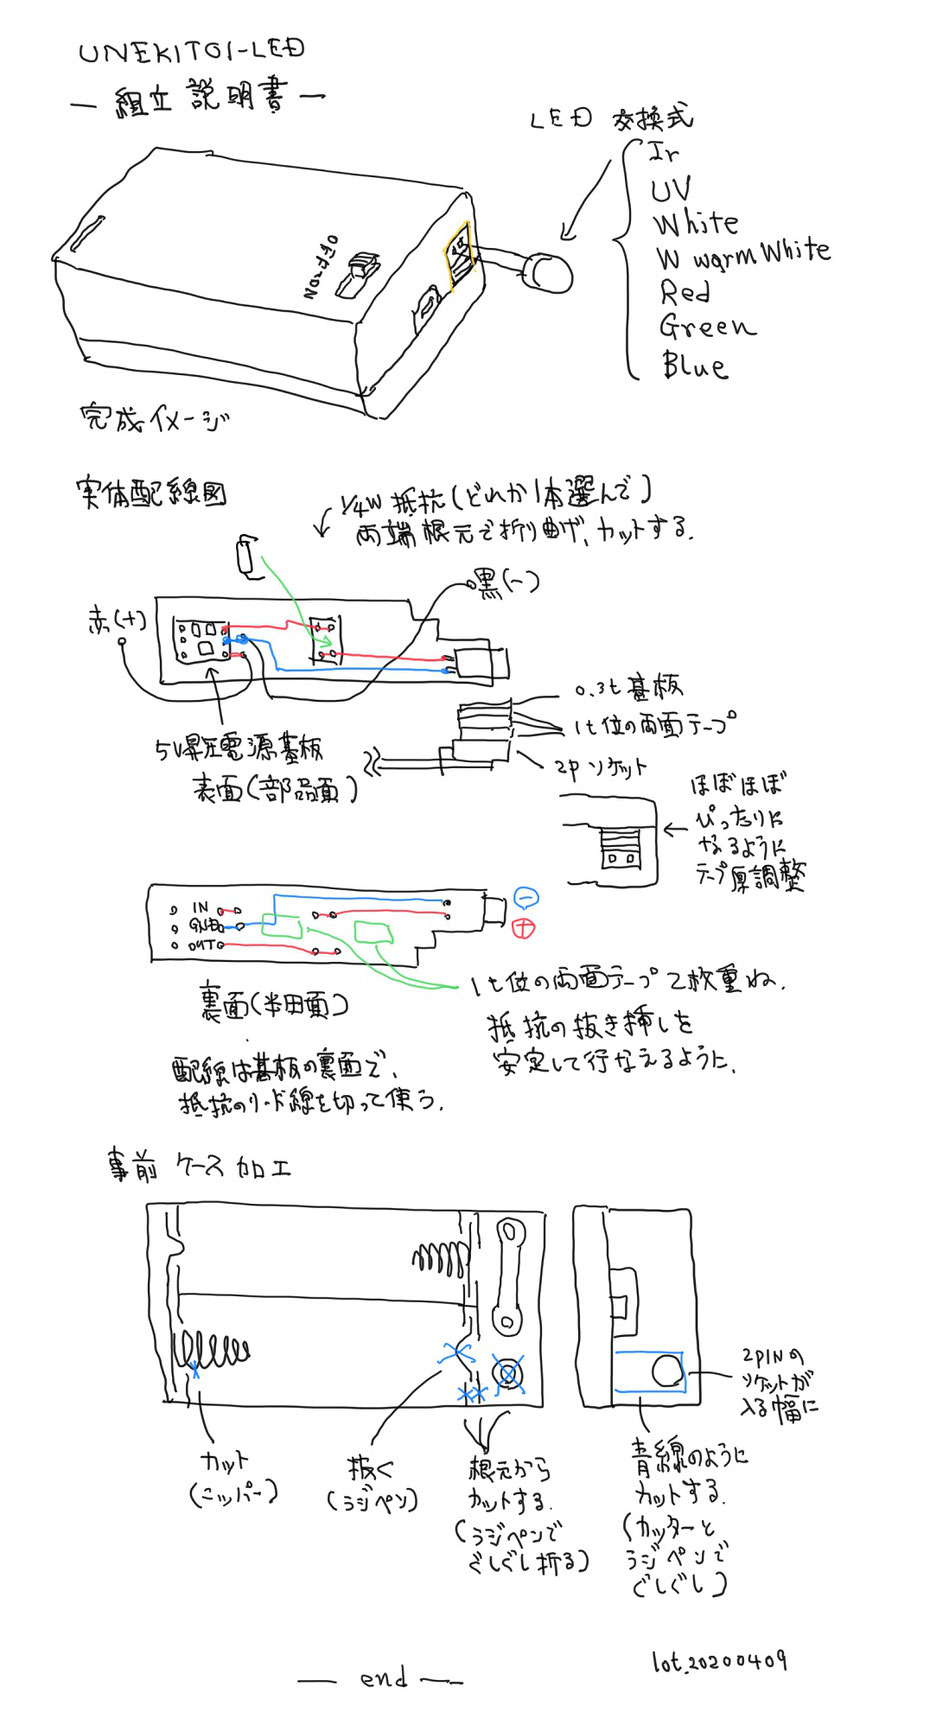 UNEKIT01-LED
— 組立説明書 —
LED 交換式
Ir
UV
White
W warm White
Red
Green
Blue
完成イメージ
実体配線図
1/4W 抵抗(どれか1本選んで)
両端根元で折り曲げ、カットする.
黒(-)
赤(+)
5V昇圧電源基板
表面(部品面)
0.3t 基板
1t位の両面テープ
2P ソケット
ほぼほぼ
ぴったりに
なるように
テープ厚調整
IN
GND
OUT
⊖
⊕
裏面(半田面)
1t位の両面テープ2枚重ね.
抵抗の抜き挿しを
安定して行なえるように.
配線は基板の裏面で,
抵抗のリード線を切って使う.
事前 ケース加工
2PINの
ソケットが
入る幅に
カット
(ニッパー)
抜く
(ラジペン)
根元から
カットする.
(ラジペンで
ぐしぐし折る)
青線のように
カットする.
(カッターと
ラジペンで
ぐしぐし)
lot.20200409
— end —